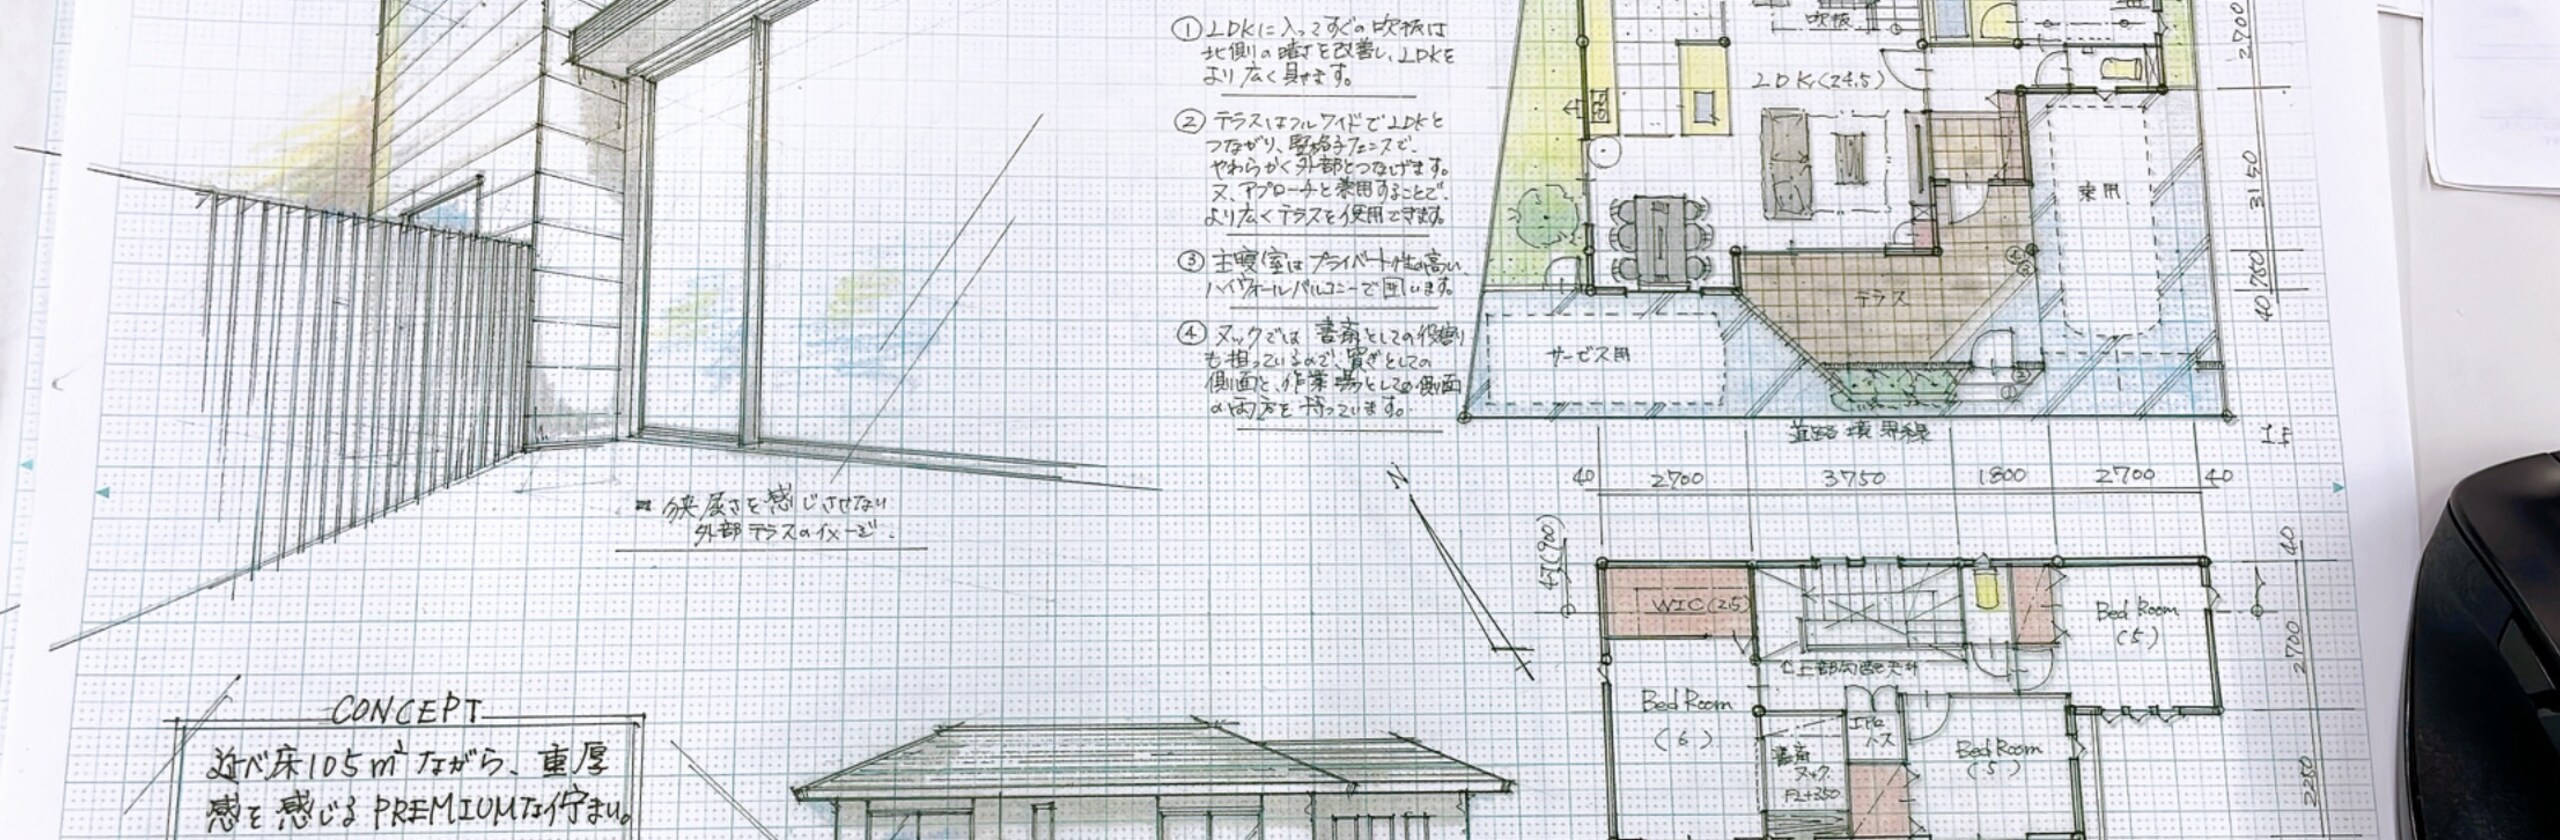 ① LDKに入ってすぐの吹抜は
北側の暗さを改善し、LDKを
より広く見せます。
② テラスはフルワイドでLDKと
つながり、竪格子フェンスで、
やわらかく外部とつなげます。
又、アプローチと兼用することで、
より広くテラスを使用できます。
③ 主寝室はプライバート性の高い
ハイウォールバルコニーで囲います。
④ ヌックでは 書斎としての役割り
も担っているので、寛ぎとしての
側面と、作業場としての側面
の両方を持っています。
狭屋さを感じさせない
外部テラスのイメージ.
CONCEPT
延べ床105㎡ながら、重厚
感を感じるPREMIUMな佇まい。
吹抜
LDK(24.5)
兼用
テラス
サービス用
道路境界線
1F
2700
3150
750
40
40
2700
3750
1800
2700
40
N
WIC(2.5)
Bed Room
(5)
上部勾配天井
Bed Room
(6)
書斎
ヌック
FL+350
Bed Room
(5)
40
2700
2250